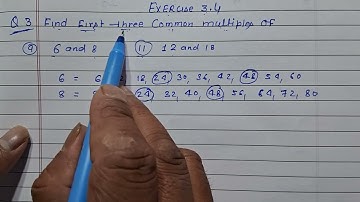 EXERCISE 3.4
Q.3 Find first three Common multiples of
(9) 6 and 8 (11) 12 and 18
6 = 6 18, 24, 30, 36, 42, 48, 54, 60
8 = 8 24, 32, 40, 48, 56, 64, 72, 80